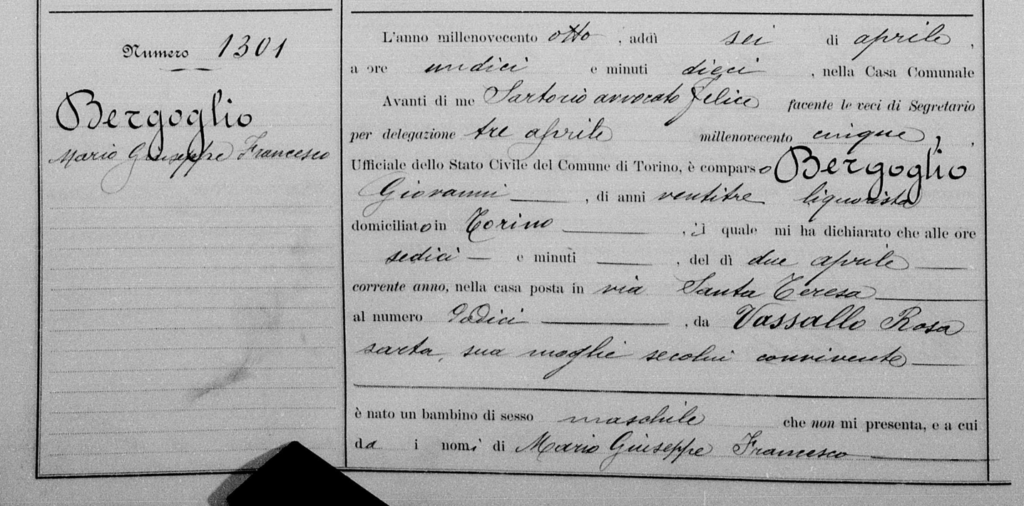 Numero 1301
Bergoglio
Mario Giuseppe Francesco
L'anno millenovecento otto, addì sei di aprile,
a ore undici e minuti dieci, nella Casa Comunale
Avanti di me Sartorio avvocato Felice facente le veci di Segretario
per delegazione tre aprile millenovecento cinque,
Ufficiale dello Stato Civile del Comune di Torino, è comparso Bergoglio
Giovanni, di anni ventitre liquorista
domiciliato in Torino, il quale mi ha dichiarato che alle ore
sedici e minuti, del dì due aprile
corrente anno, nella casa posta in via Santa Teresa
al numero dodici, da Vassallo Rosa
sarta, sua moglie secolui convivente
è nato un bambino di sesso maschile che non mi presenta, e a cui
da i nomi di Mario Giuseppe Francesco